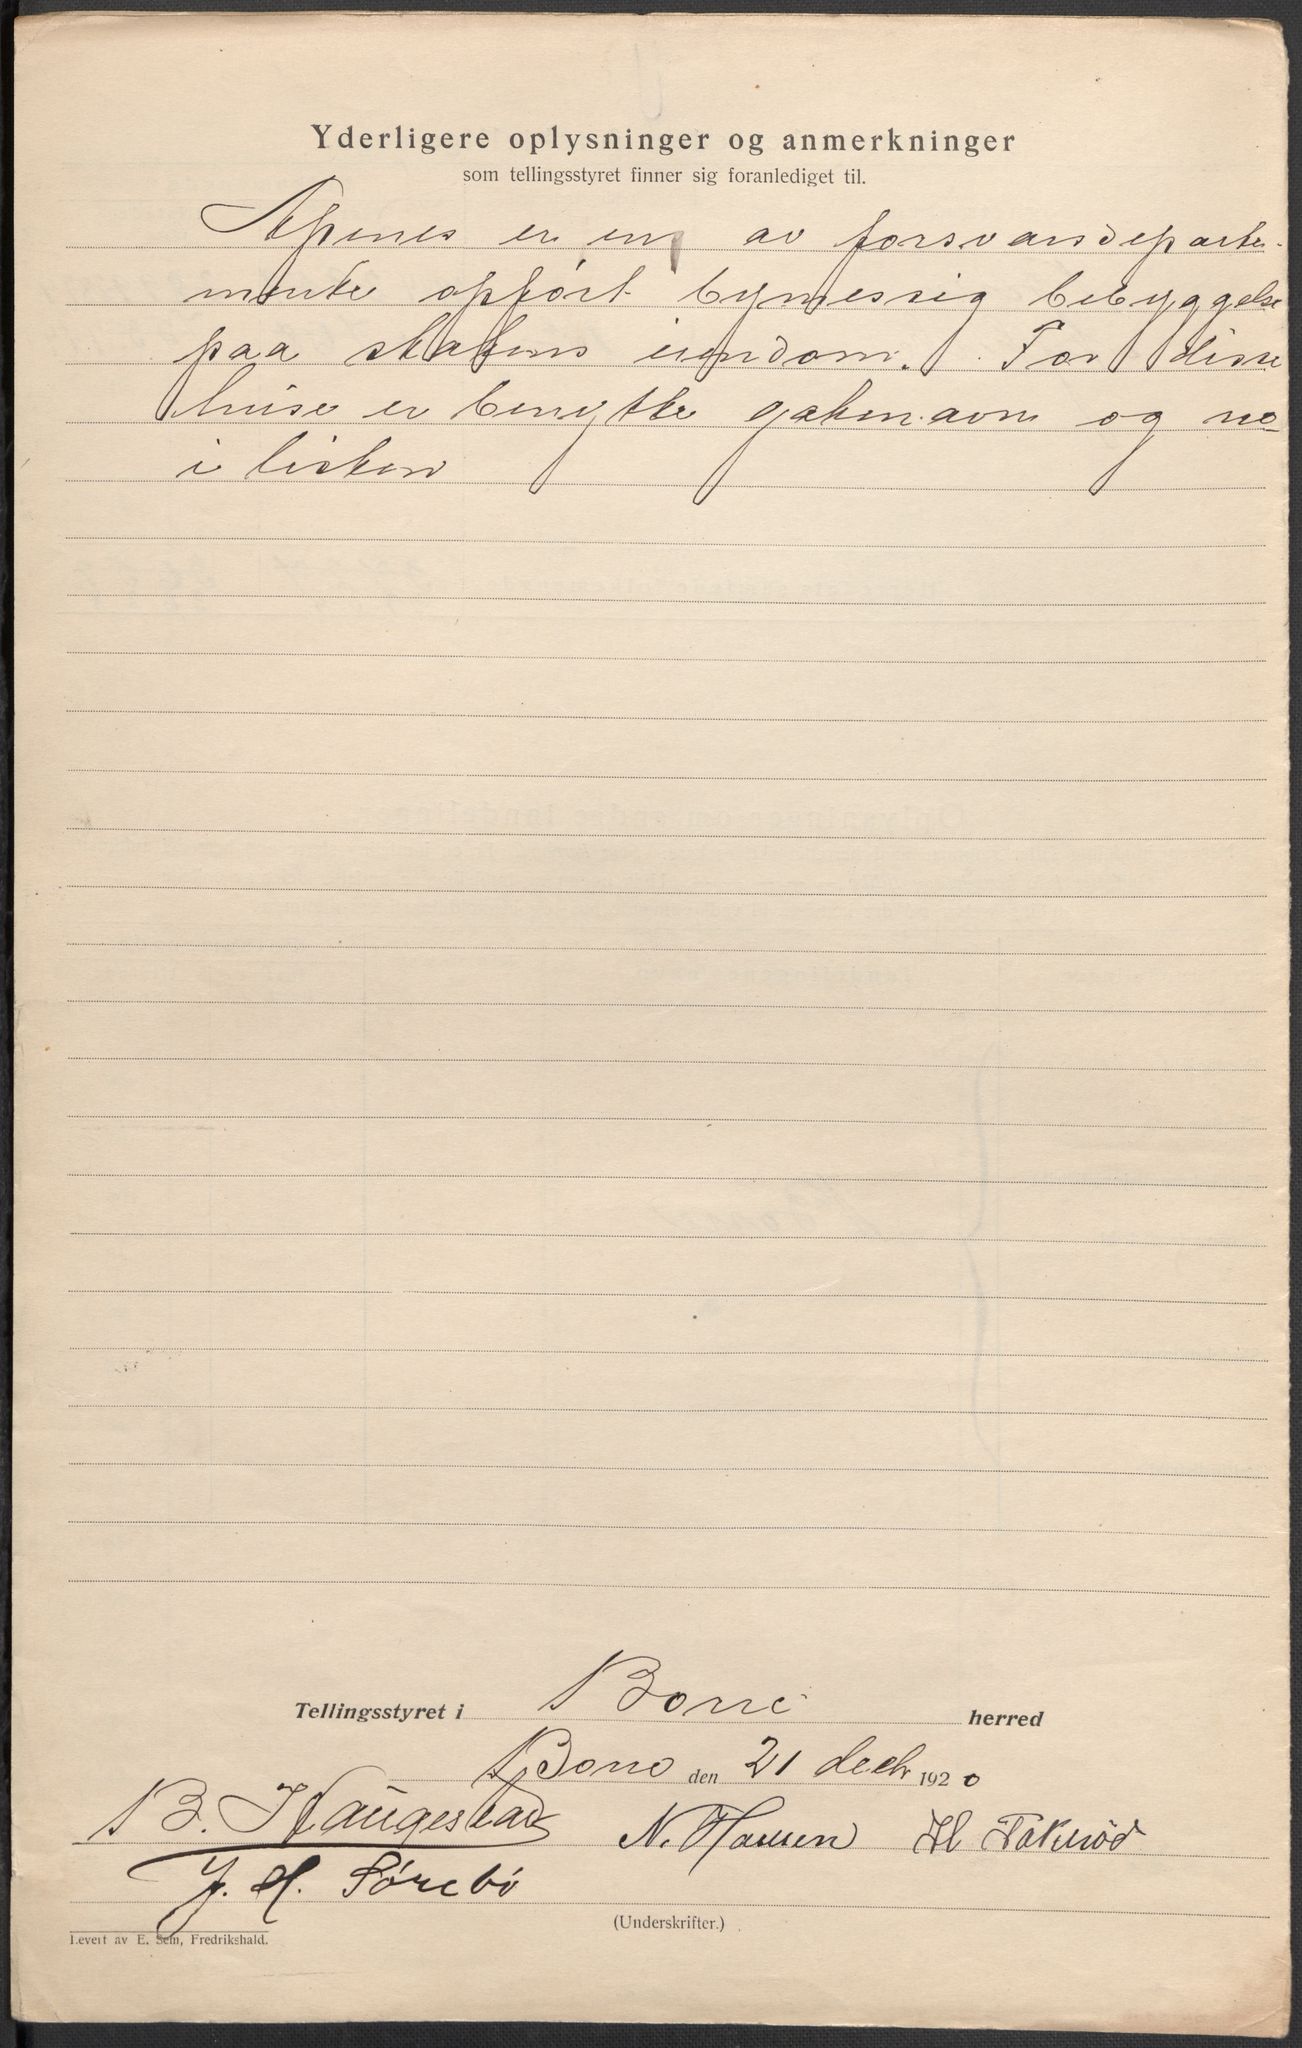 Yderligere oplysninger og anmerkninger
som tellingsstyret finner sig foranlediget til.
Apenes er en av forsvarsdeparte-
mente opført bymessig bebyggelse
paa statens eiendom. For disse
huse er benytte gatenavn og no
i listen
Tellingsstyret i Borre herred
Borre den 21 decbr 1920
B. Haugestad N. Hansen H Fokserød
J. H. Sørebø
(Underskrifter.)
Levert av E. Sem, Fredrikshald.